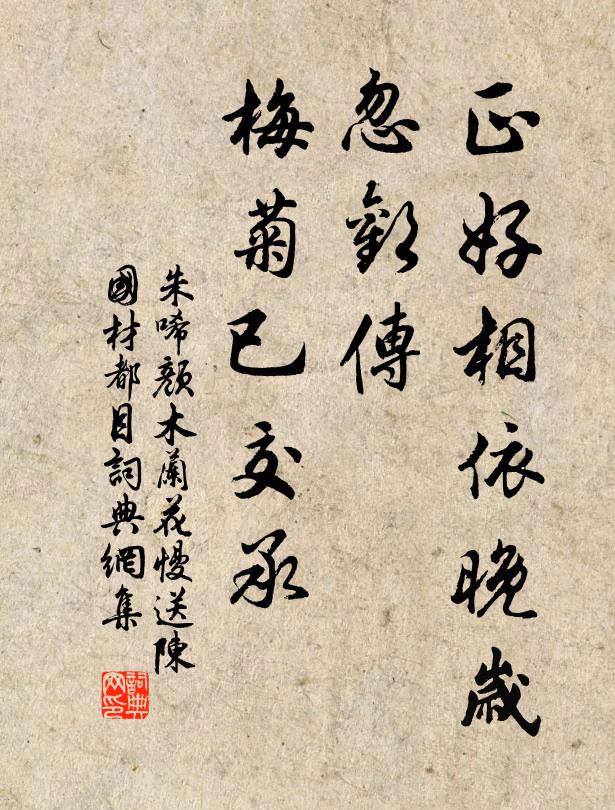 正好相依晚歲
忽歡傳
梅菊已交承
朱唏顏木蘭花慢送陳
國材都目詞典網集
詞典
网印